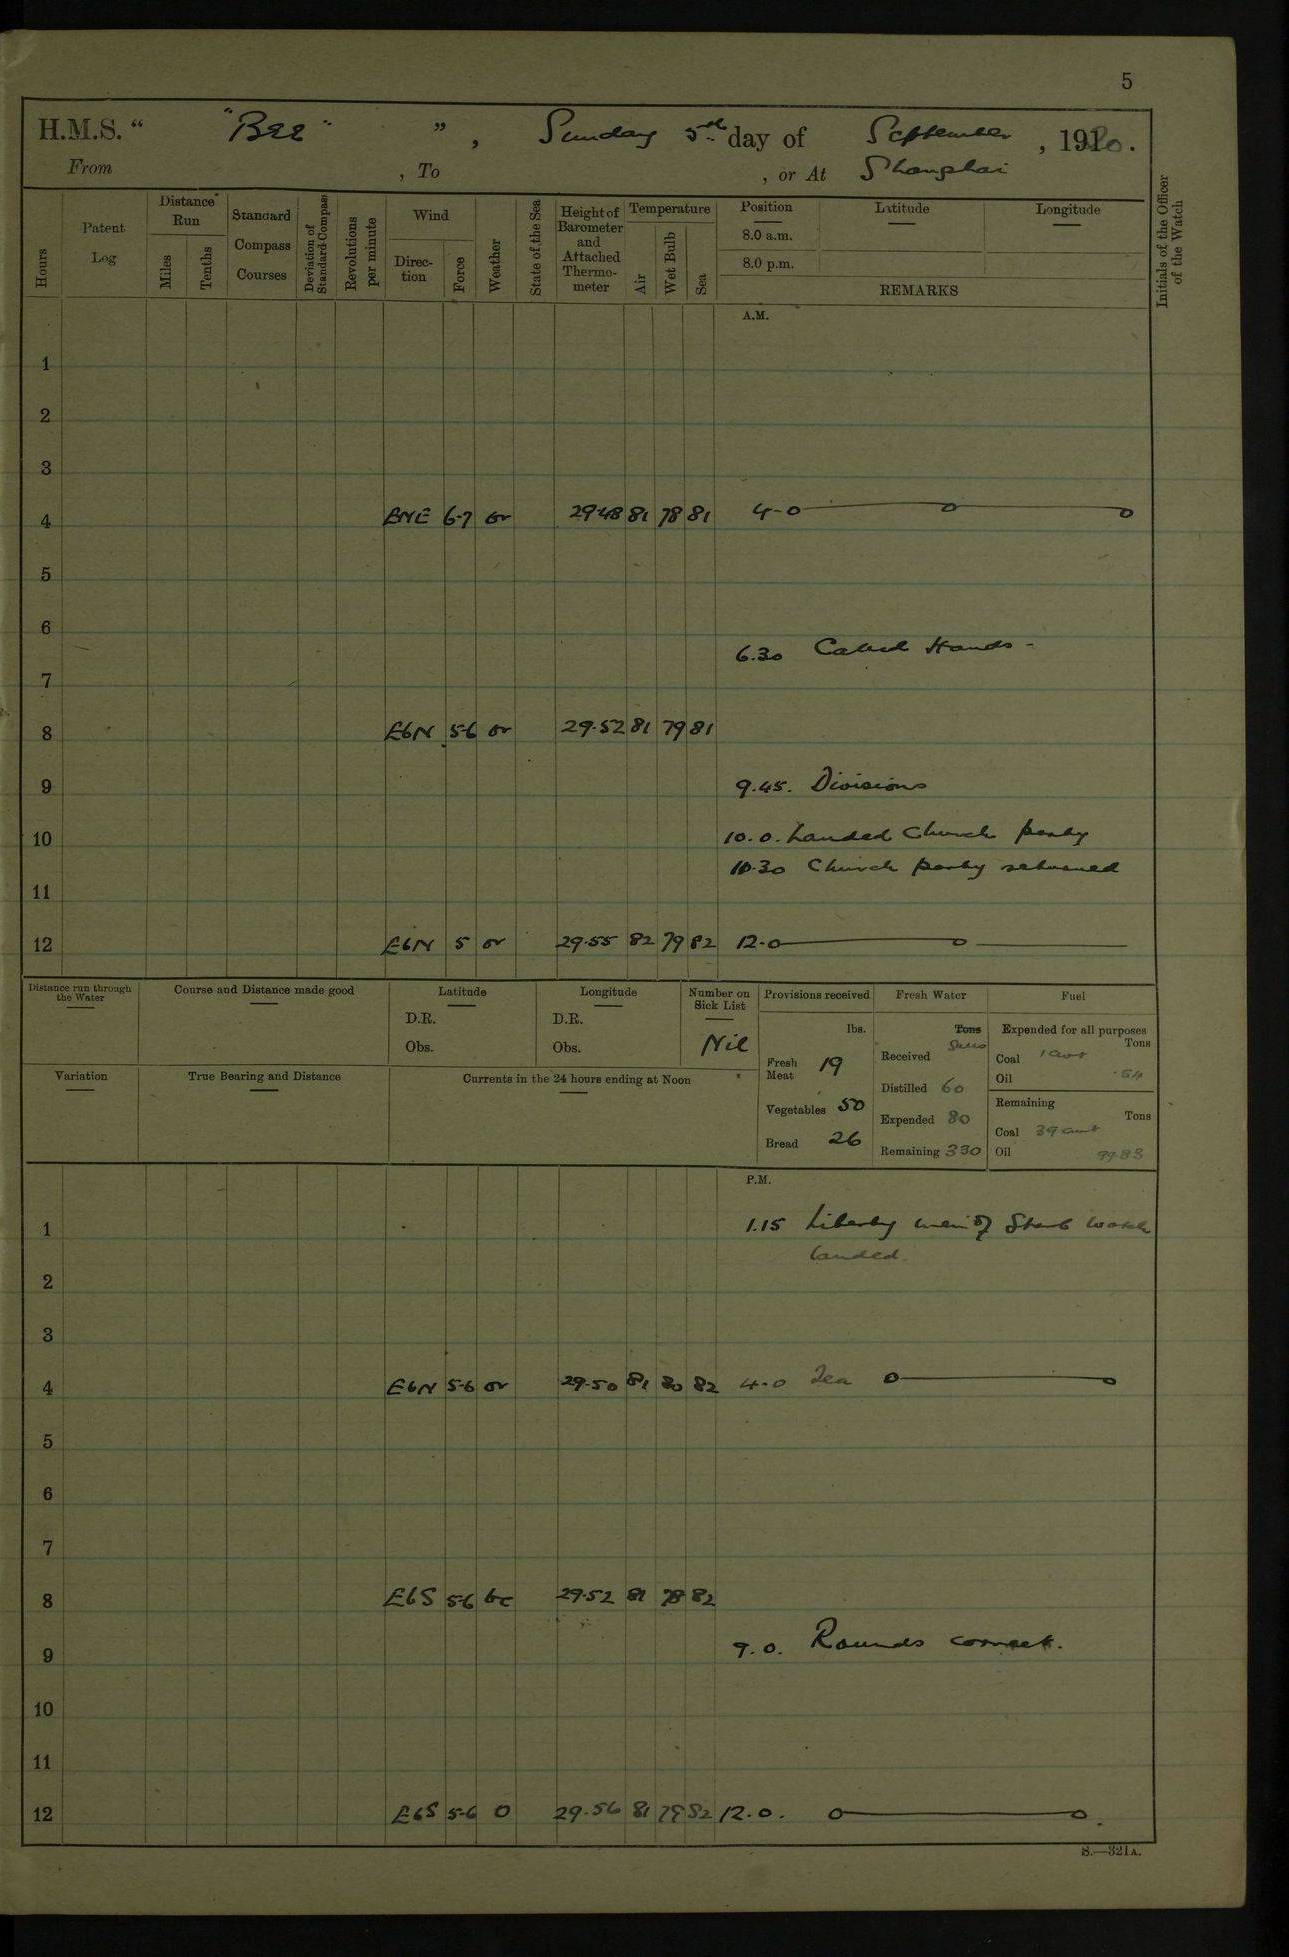 5
H.M.S. “ "Bee" ” , Sunday 5th day of September , 1920.
From , To , or At Shanghai
Hours
Patent Log
Distance Run
Miles
Tenths
Standard Compass Courses
Deviation of Standard Compass
Revolutions per minute
Wind
Direction
Force
Weather
State of the Sea
Height of Barometer and Attached Thermometer
Temperature
Air
Wet Bulb
Sea
Position Latitude Longitude
8.0 a.m.
8.0 p.m.
REMARKS
Initials of the Officer of the Watch
A.M.
1
2
3
4 ENE 6-7 or 29.48 81 78 81 4-0
5
6
6.30 Called Hands -
7
8 EbN 5-6 or 29.52 81 79 81
9 9.45. Divisions
10 10.0. Landed Church party
10.30 Church party returned
11
12 EbN 5 or 29.55 82 79 82 12-0
Distance run through the Water
Course and Distance made good
Latitude
D.R.
Obs.
Longitude
D.R.
Obs.
Number on Sick List
Nil
Provisions received
lbs.
Fresh Meat 19
Vegetables 50
Bread 26
Fresh Water
Tons
Received
Distilled 60
Expended 80
Remaining 330
Fuel
Expended for all purposes
Tons
Coal 1 cwt
Oil .54
Remaining
Tons
Coal 39 cwt
Oil 99.83
Variation
True Bearing and Distance
Currents in the 24 hours ending at Noon
P.M.
1 1.15 Liberty men of Starb watch
landed.
2
3
4 EbN 5-6 or 29.50 81 80 82 4-0 Tea
5
6
7
8 EbS 5-6 bc 29.52 81 78 82
9 9.0. Rounds correct.
10
11
12 EbS 5-6 O 29.56 81 79 82 12.0.
S.—321A.